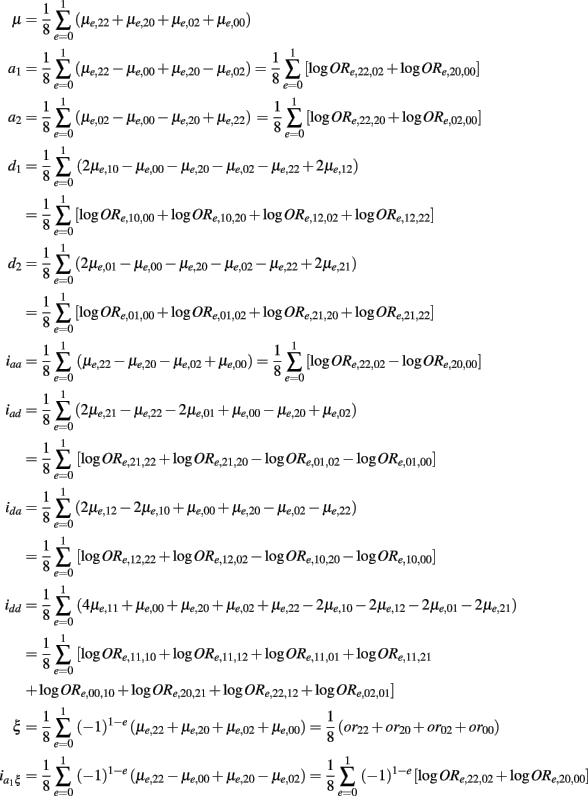 μ = 1/8 ∑_{e=0}^{1} (μ_{e,22} + μ_{e,20} + μ_{e,02} + μ_{e,00})
a_1 = 1/8 ∑_{e=0}^{1} (μ_{e,22} − μ_{e,00} + μ_{e,20} − μ_{e,02}) = 1/8 ∑_{e=0}^{1} [log OR_{e,22,02} + log OR_{e,20,00}]
a_2 = 1/8 ∑_{e=0}^{1} (μ_{e,02} − μ_{e,00} − μ_{e,20} + μ_{e,22}) = 1/8 ∑_{e=0}^{1} [log OR_{e,22,20} + log OR_{e,02,00}]
d_1 = 1/8 ∑_{e=0}^{1} (2μ_{e,10} − μ_{e,00} − μ_{e,20} − μ_{e,02} − μ_{e,22} + 2μ_{e,12})
= 1/8 ∑_{e=0}^{1} [log OR_{e,10,00} + log OR_{e,10,20} + log OR_{e,12,02} + log OR_{e,12,22}]
d_2 = 1/8 ∑_{e=0}^{1} (2μ_{e,01} − μ_{e,00} − μ_{e,20} − μ_{e,02} − μ_{e,22} + 2μ_{e,21})
= 1/8 ∑_{e=0}^{1} [log OR_{e,01,00} + log OR_{e,01,02} + log OR_{e,21,20} + log OR_{e,21,22}]
i_{aa} = 1/8 ∑_{e=0}^{1} (μ_{e,22} − μ_{e,20} − μ_{e,02} + μ_{e,00}) = 1/8 ∑_{e=0}^{1} [log OR_{e,22,02} − log OR_{e,20,00}]
i_{ad} = 1/8 ∑_{e=0}^{1} (2μ_{e,21} − μ_{e,22} − 2μ_{e,01} + μ_{e,00} − μ_{e,20} + μ_{e,02})
= 1/8 ∑_{e=0}^{1} [log OR_{e,21,22} + log OR_{e,21,20} − log OR_{e,01,02} − log OR_{e,01,00}]
i_{da} = 1/8 ∑_{e=0}^{1} (2μ_{e,12} − 2μ_{e,10} + μ_{e,00} + μ_{e,20} − μ_{e,02} − μ_{e,22})
= 1/8 ∑_{e=0}^{1} [log OR_{e,12,22} + log OR_{e,12,02} − log OR_{e,10,20} − log OR_{e,10,00}]
i_{dd} = 1/8 ∑_{e=0}^{1} (4μ_{e,11} + μ_{e,00} + μ_{e,20} + μ_{e,02} + μ_{e,22} − 2μ_{e,10} − 2μ_{e,12} − 2μ_{e,01} − 2μ_{e,21})
= 1/8 ∑_{e=0}^{1} [log OR_{e,11,10} + log OR_{e,11,12} + log OR_{e,11,01} + log OR_{e,11,21}
+ log OR_{e,00,10} + log OR_{e,20,21} + log OR_{e,22,12} + log OR_{e,02,01}]
ξ = 1/8 ∑_{e=0}^{1} (−1)^{1−e} (μ_{e,22} + μ_{e,20} + μ_{e,02} + μ_{e,00}) = 1/8 (or_{22} + or_{20} + or_{02} + or_{00})
i_{a_1ξ} = 1/8 ∑_{e=0}^{1} (−1)^{1−e} (μ_{e,22} − μ_{e,00} + μ_{e,20} − μ_{e,02}) = 1/8 ∑_{e=0}^{1} (−1)^{1−e} [log OR_{e,22,02} + log OR_{e,20,00}]